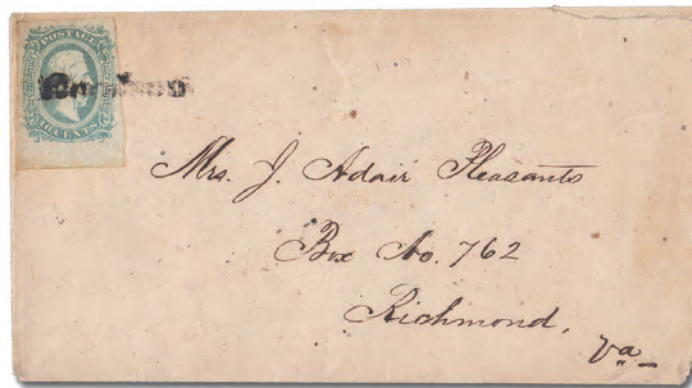 POSTAGE
10 CENTS
Mrs. J. Adair Pleasants
Box No. 762
Richmond,
Va